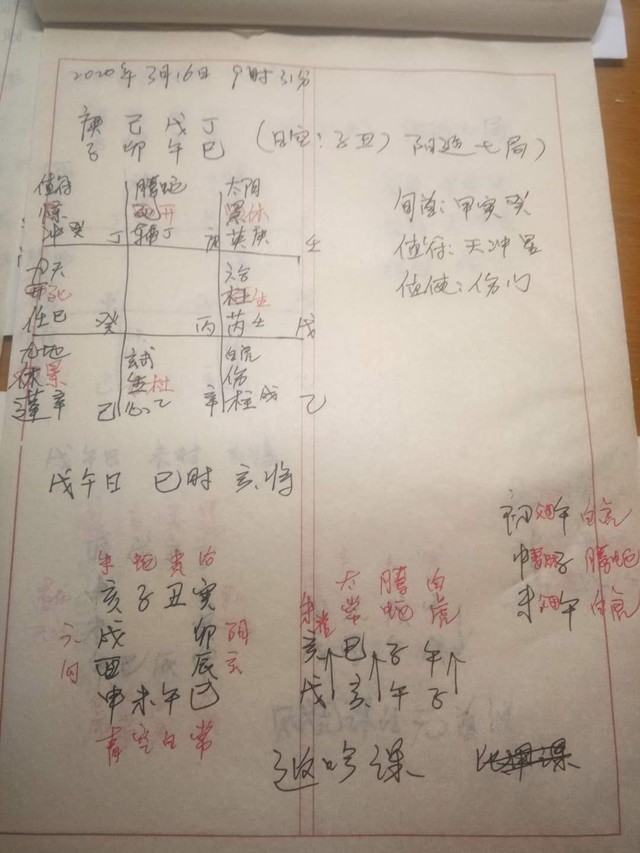 2020年3月16日 9时31分
庚 己 戊 丁
子 卯 午 巳
(日空:子丑) 阳遁七局)
旬首:甲寅癸
值符:天冲星
值使:伤门
值符 腾蛇 太阴
开 景休
冲癸 丁 辅丁 庚 英庚 壬
九天 六合
死 生
任己 癸 丙 芮壬 戊
九地 玄武 白虎
休景 杜 伤
蓬辛 己 心乙 辛 柱戊 乙
戊午日 巳时 亥将
初 午 白虎
中 子 腾蛇
末 午 白虎
朱 蛇 贵 合
亥 子 丑 寅
戌 卯 阴
酉 辰 玄
申 未 午 巳
青 空 白 常
朱雀 太常 腾蛇 白虎
亥 巳 子 午
戌 亥 午 子
返吟课